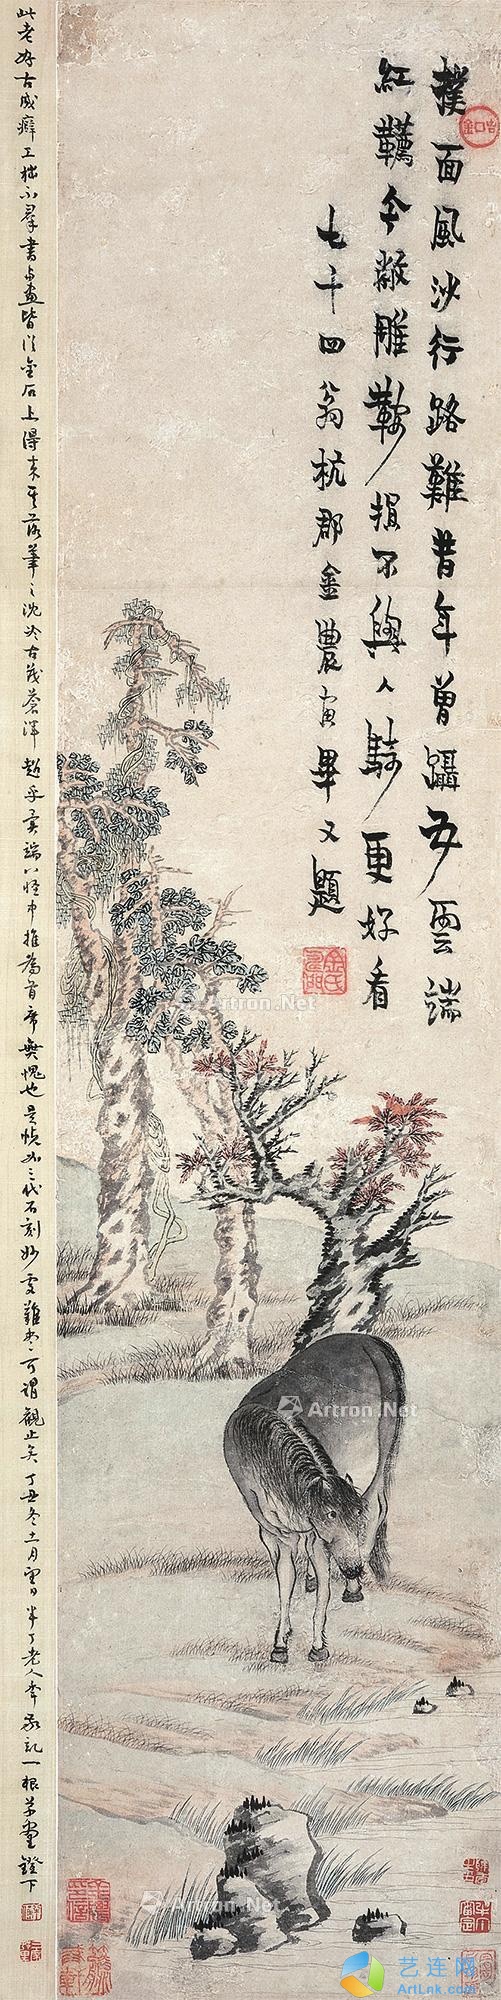 撲面風沙行路難昔年曾躡五雲端
紅韉今敝雕鞍損不與人騎更好看
七十四翁杭郡金農畫畢又題
金氏
此老好古成癖工拙不羣書與畫皆從金石上得來其落筆之沈古茂蒼渾超乎異端八怪中推為首席無愧也是幀如三代石刻妙處難盡可謂觀止矣丁丑冬十一月雪日半丁老人年記一根草堂鐙下
Artron.Net
Artron.Net
Artron.Net
艺连网
ArtLnk.Com